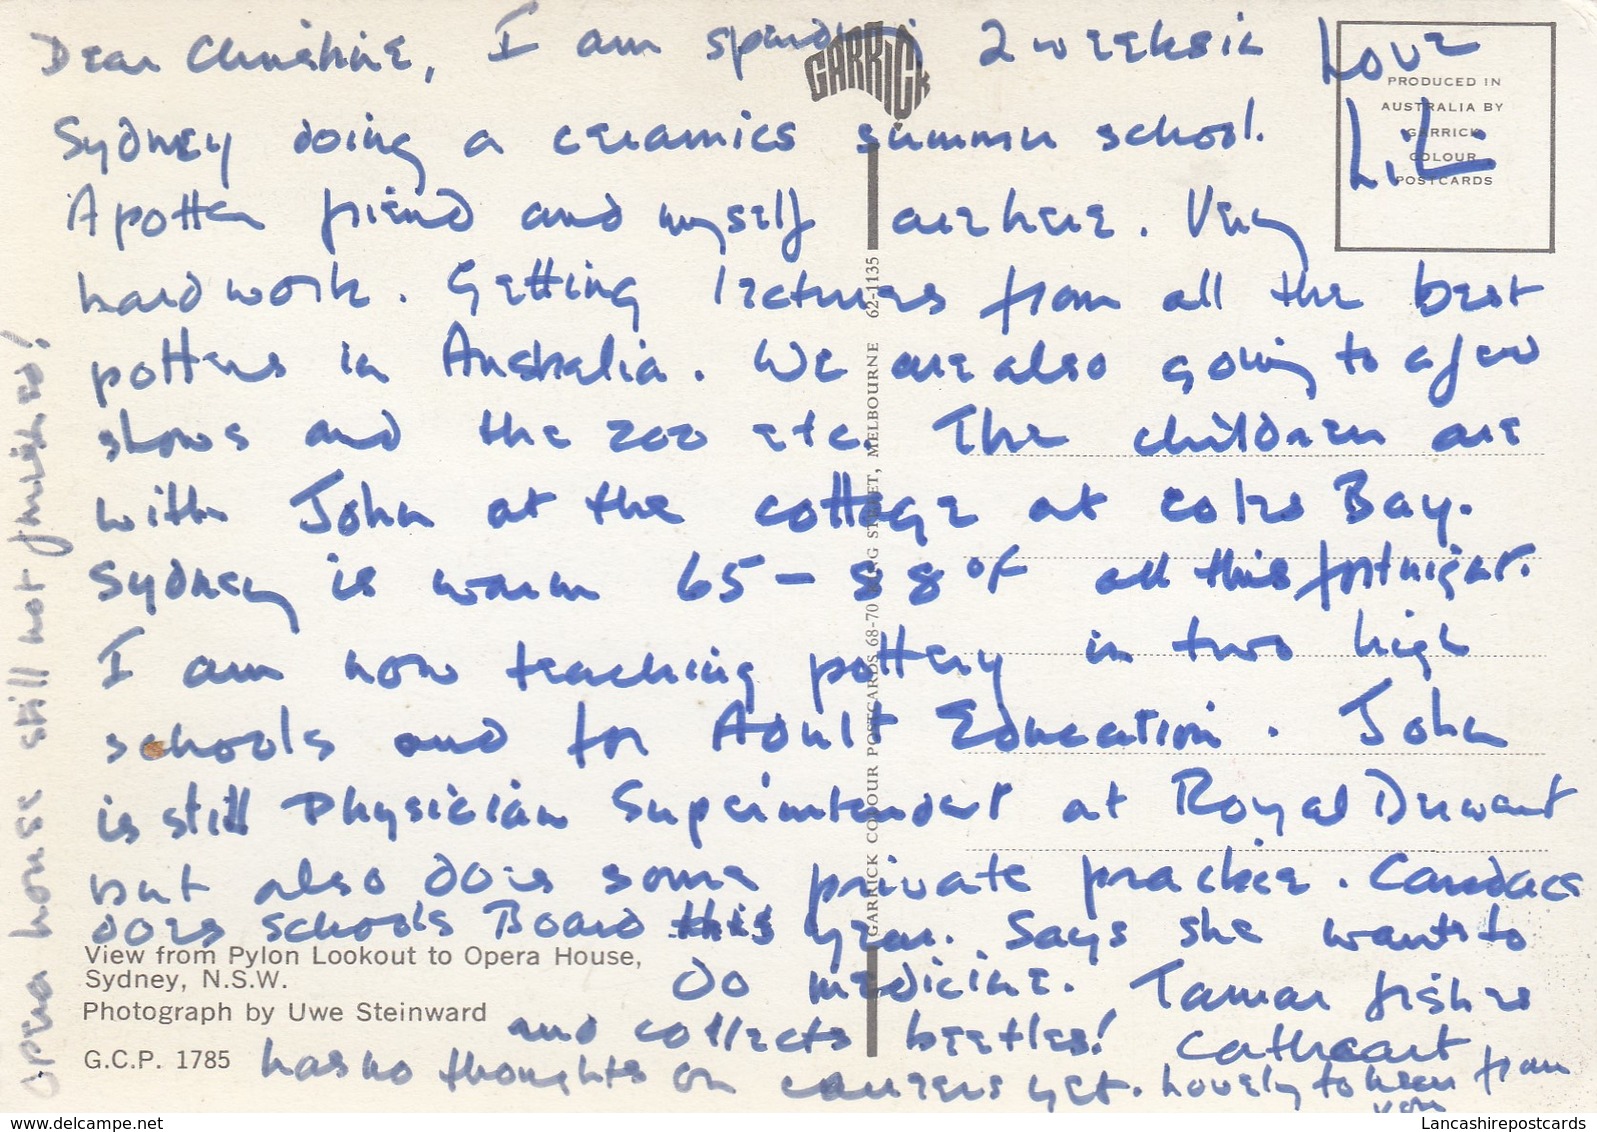 Dear Christine, I am spending 2 weeks in
Sydney doing a ceramics summer school.
A potter friend and myself are here. Very
hard work. Getting lectures from all the best
potters in Australia. We are also going to a few
shows and the zoo etc. The children are
with John at the cottage at Coles Bay.
Sydney is warm 65 - 88°F all this fortnight.
I am now teaching pottery in two high
schools and for Adult Education. John
is still Physician Superintendent at Royal Derwent
but also does some private practice. Candace
does Schools Board this year. Says she wants to
do medicine. Tamar fishes
and collects beetles! Cathcart
has no thoughts on careers yet. Lovely to hear from
you
Love
Liz
Opera house still not finished!
GARRICK
PRODUCED IN
AUSTRALIA BY
GARRICK
COLOUR
POSTCARDS
GARRICK COLOUR POSTCARDS 68-70 KING STREET, MELBOURNE 62-1135
View from Pylon Lookout to Opera House,
Sydney, N.S.W.
Photograph by Uwe Steinward
G.C.P. 1785
www.delcampe.net
Lancashirepostcards